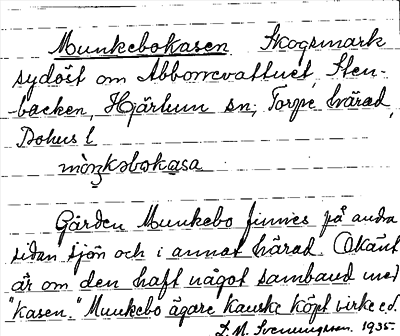 Munkebokasen Skogsmark
sydöst om Abborrevattnet, Sten-
backen, Hjärtum sn, Torpe härad,
Bohus l
mùŋkəbokasa
Gården Munkebo finnes på andra
sidan sjön och i annat härad. Okänt
är om den haft något samband med
"Kasen." Munkebo ägare kanske köpt virke e.d.
S. M. Svenningson. 1935.